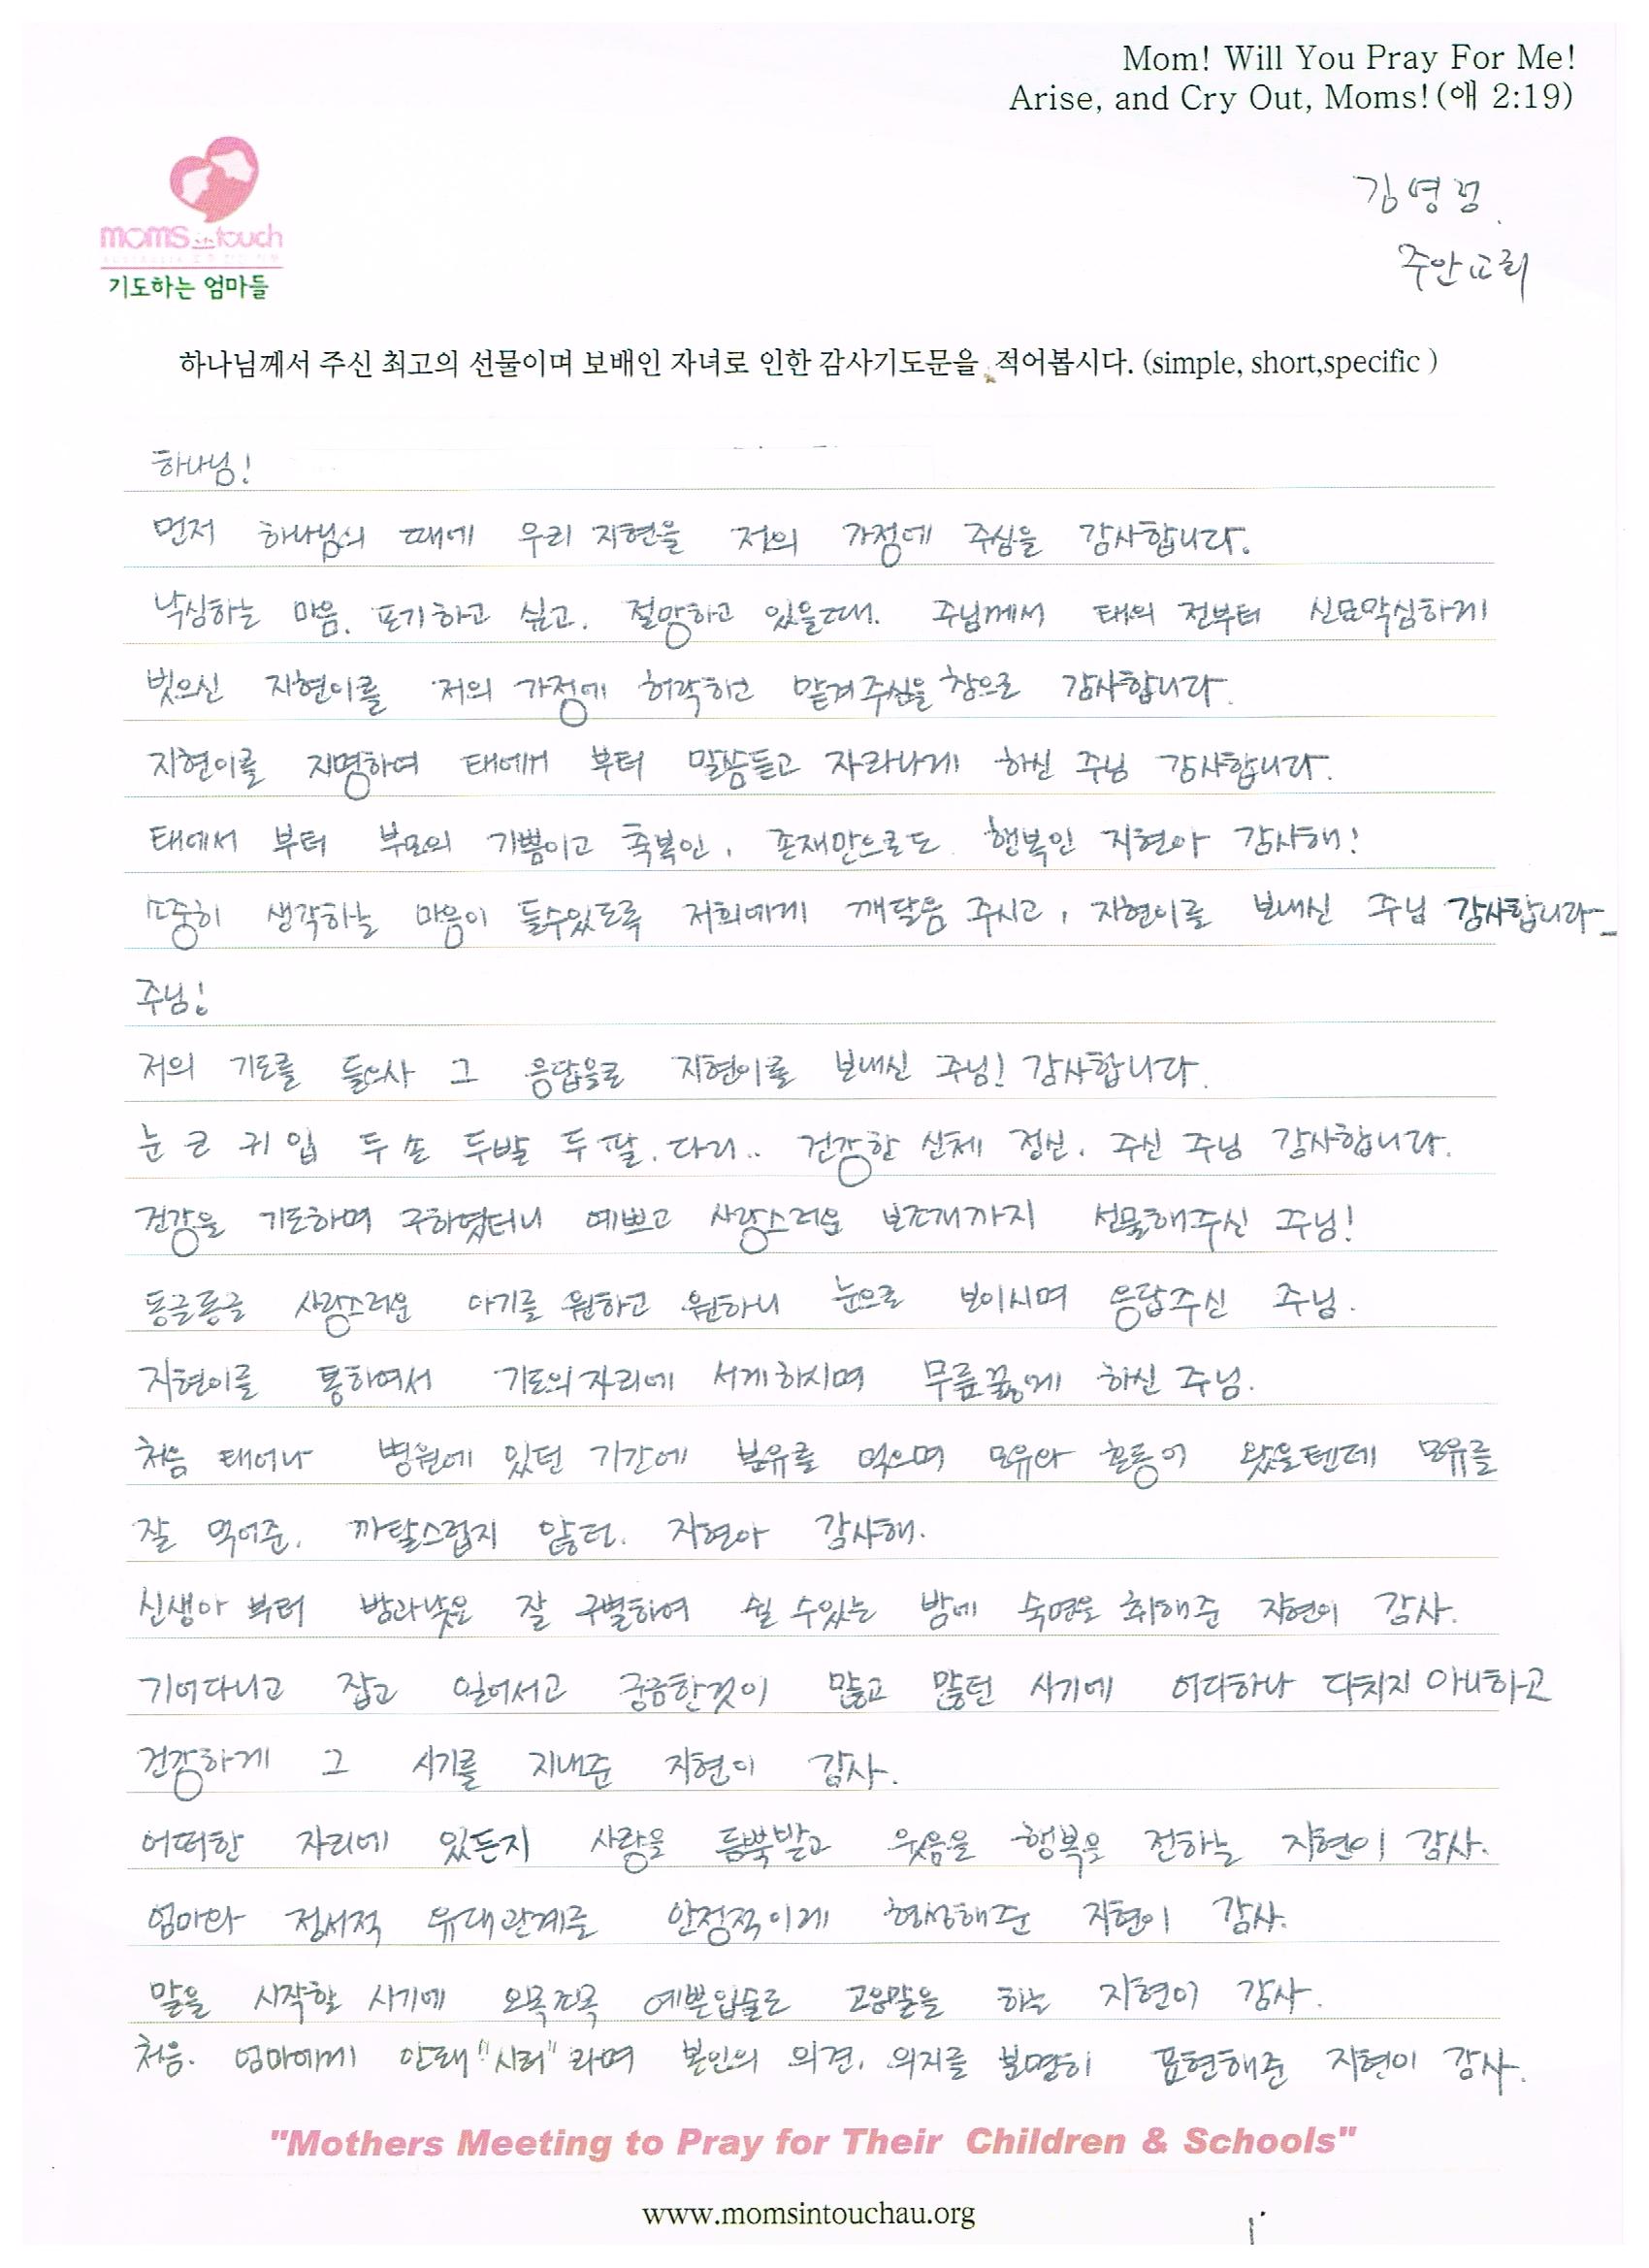 Mom! Will You Pray For Me!
Arise, and Cry Out, Moms!(애 2:19)
김영정.
주안교회
moms in touch
기도하는 엄마들
하나님께서 주신 최고의 선물이며 보배인 자녀로 인한 감사기도문을 적어봅시다. (simple, short,specific )
하나님!
먼저 하나님의 때에 우리 지현을 저의 가정에 주심을 감사합니다.
낙심하는 마음. 포기하고 싶고. 절망하고 있을때. 주님께서 태의 전부터 신묘막심하게
빚으신 지현이를 저의 가정에 허락하고 맡겨주심을 참으로 감사합니다.
지현이를 지명하여 태에서 부터 말씀듣고 자라나게 하신 주님 감사합니다.
태에서 부터 부모의 기쁨이고 축복인, 존재만으로도 행복인 지현아 감사해!
소중히 생각하는 마음이 들수있도록 저희에게 깨달음 주시고, 지현이를 보내신 주님 감사합니다
주님!
저의 기도를 들으사 그 응답을로 지현이를 보내신 주님! 감사합니다.
눈 코 귀 입 두 손 두발 두 팔. 다리.. 건강한 신체 정신. 주신 주님 감사합니다.
건강을 기도하며 구하였더니 예쁘고 사랑스러운 보조개까지 선물해주신 주님!
동글동글 사랑스러운 아기를 원하고 원하니 눈으로 보이시며 응답주신 주님.
지현이를 통하여서 기도의자리에 서게하시며 무릎꿇게 하신 주님.
처음 태어나 병원에 있던 기간에 분유를 먹으며 모유와 혼동이 왔을텐데 모유를
잘 먹어준. 까탈스럽지 않던. 지현아 감사해.
신생아 부터 밤과낮을 잘 구별하여 쉴 수있는 밤에 숙면을 취해준 지현이 감사.
기어다니고 잡고 일어서고 궁금한것이 많고 많던 시기에 어디하나 다치지 아니하고
건강하게 그 시기를 지내준 지현이 감사.
어떠한 자리에 있든지 사랑을 듬뿍받고 웃음을 행복을 전하는 지현이 감사.
엄마와 정서적 유대관계를 안정적이게 형성해준 지현이 감사.
말을 시작할 시기에 오목조목 예쁜입술로 고운말을 하는 지현이 감사.
처음. 엄마에게 안돼 "시러" 라며 본인의 의견. 의지를 분명히 표현해준 지현이 감사.
"Mothers Meeting to Pray for Their Children & Schools"
www.momsintouchau.org